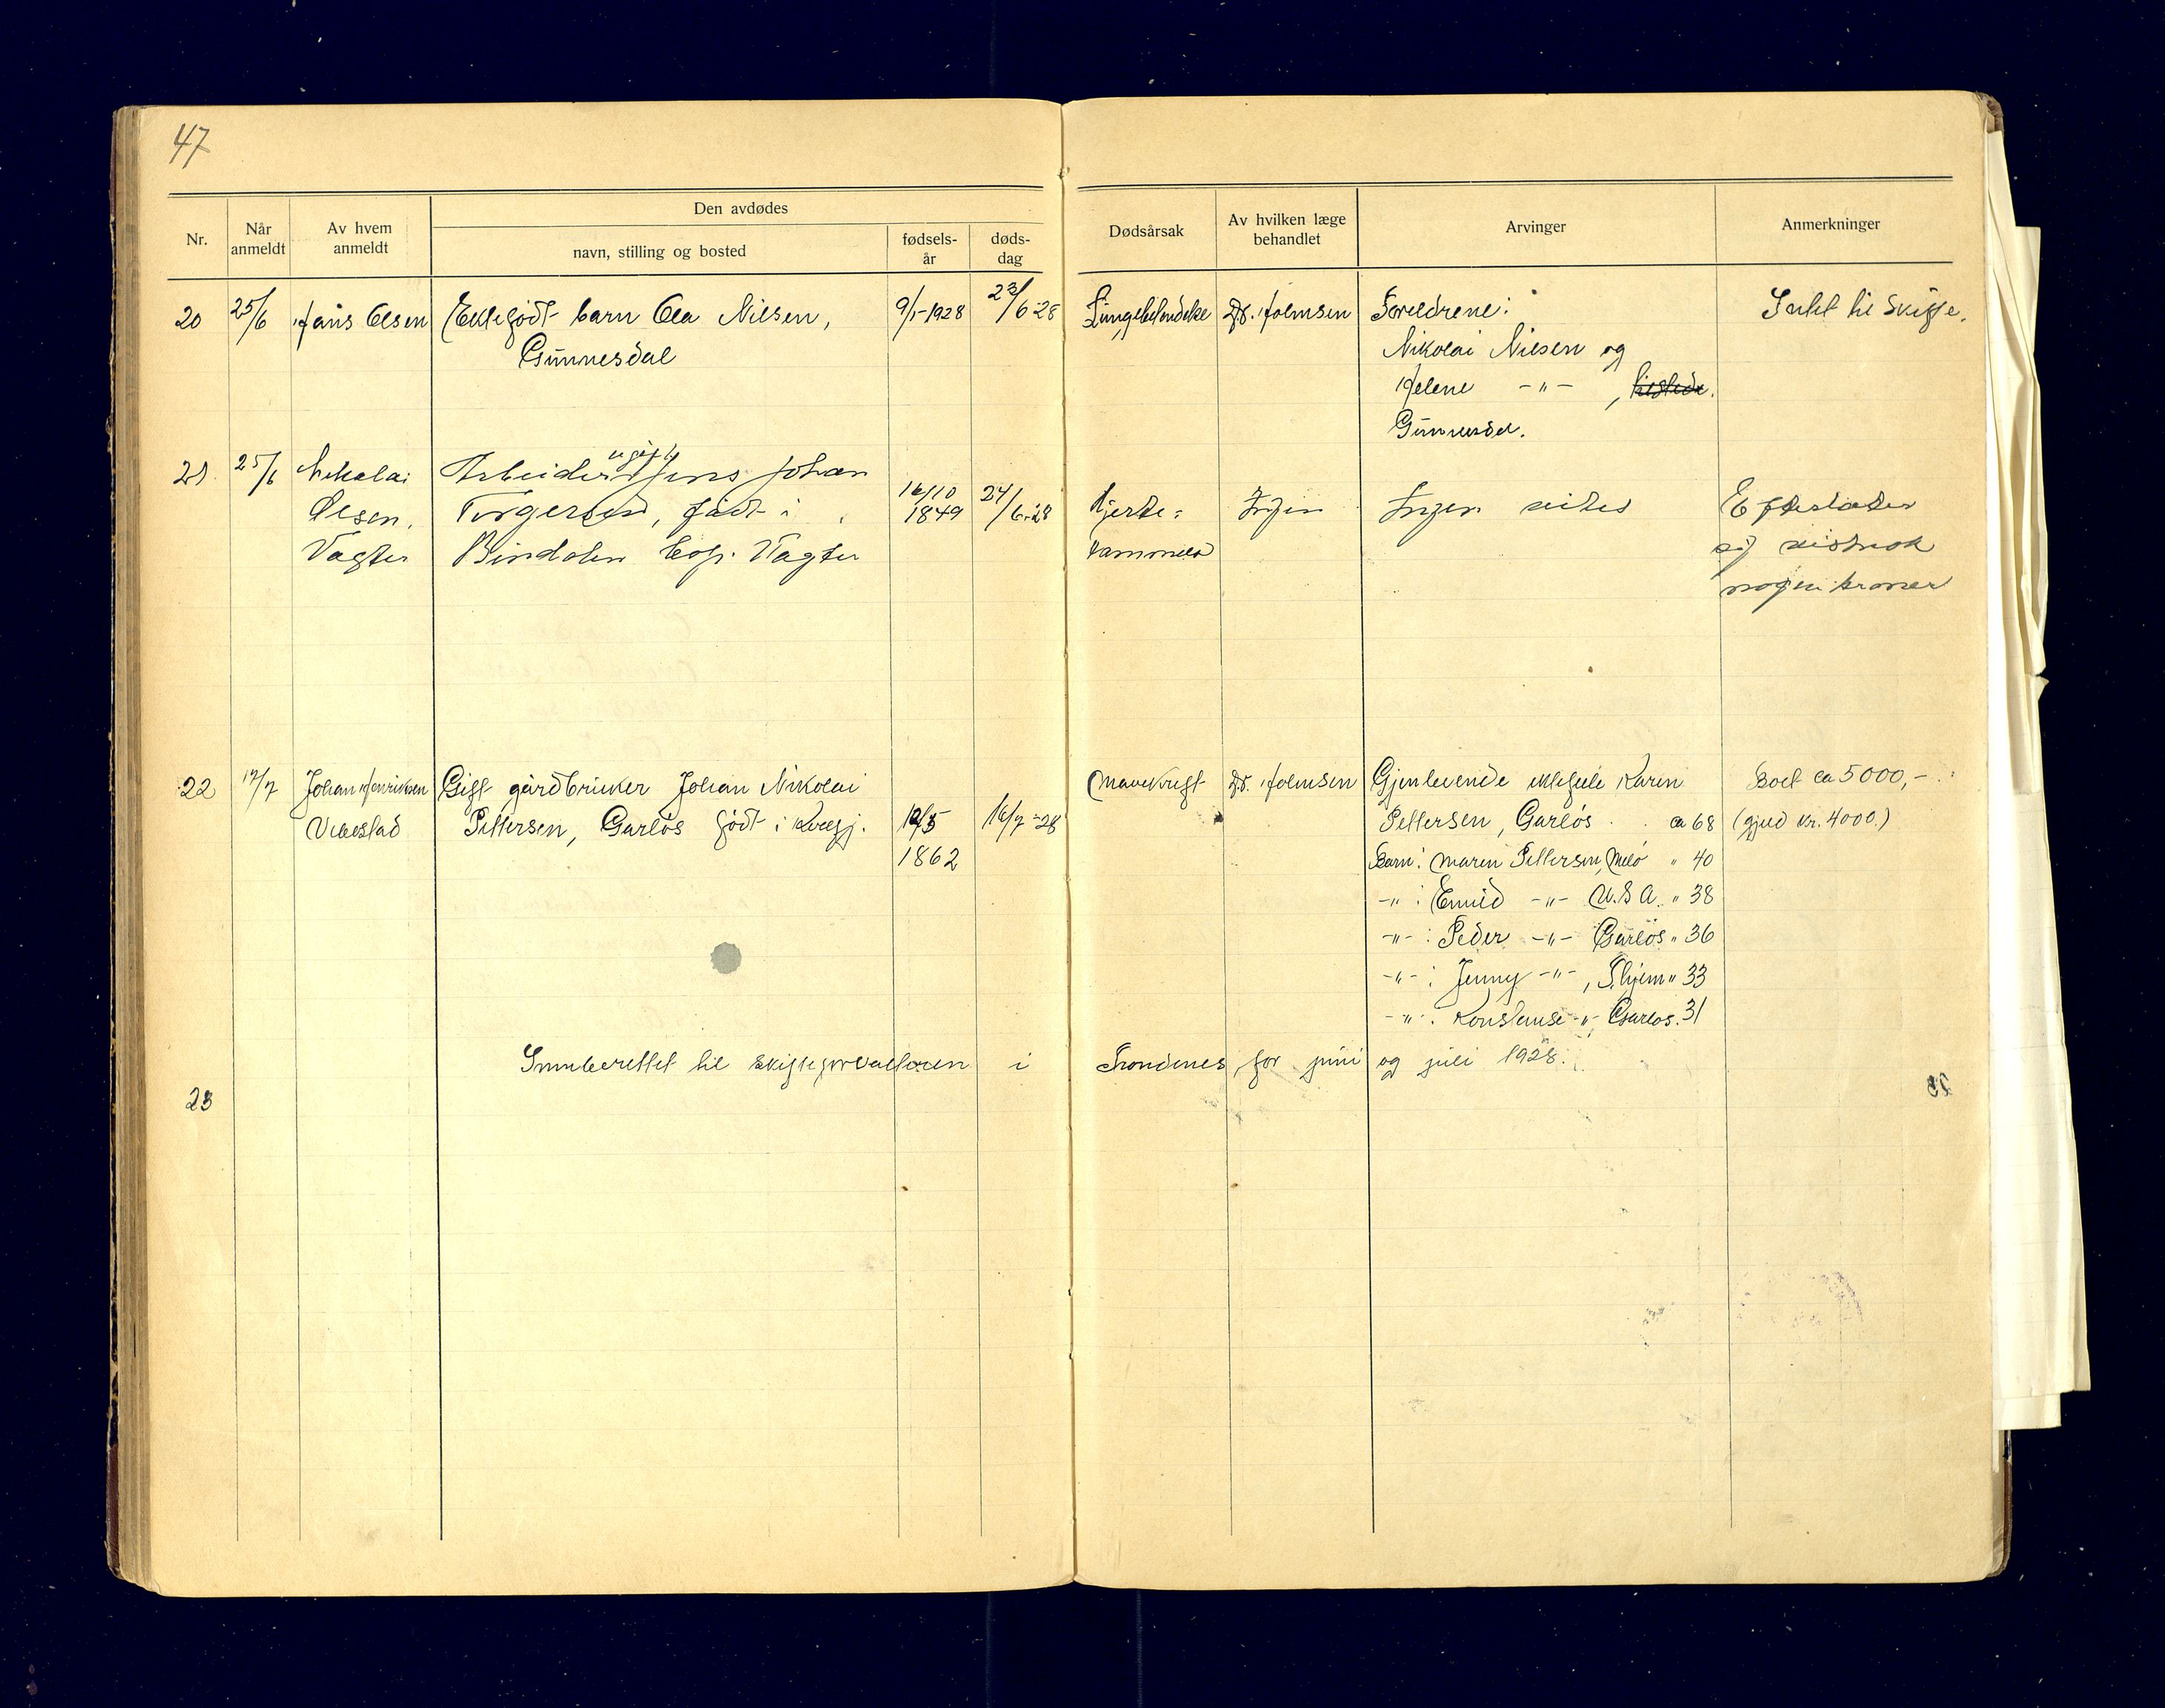 47
Nr.
Når anmeldt
Av hvem anmeldt
Den avdødes
navn, stilling og bosted
fødsels-år
døds-dag
Dødsårsak
Av hvilken læge behandlet
Arvinger
Anmerkninger
20 25/6 Hans Olsen Ektefødt barn Ola Nilsen, 9/1-1928 23/6-28 Lungebetendelse Dr. Holmsen Foreldrene: Intet til skifte.
Gunnesdal
Nikolai Nilsen og
Helene -"- ,
Gunnesdal.
21. 25/6 Nikolai Arbeider ugift Jens Johan
Olsen. Torgersen, født i 16/10 1849 24/6-28 Hjerte= Ingen Ingen vites Efterlater
Vagten Bindalen bop. Vagten lammelse sig vistnok
nogen kroner
22 17/7 Johan Henriksen Gift gårdbruker Johan Nikolai Mavekreft Dr. Holmsen Gjenlevende ektefelle Karen Boet ca 5000,-
Vikestad Pettersen, Garlös født i Kvefj. 12/5 16/7-28 Pettersen, Garlös ca 68 (gjeld kr. 4000.)
1862 Barn: Maren Pettersen, Melö " 40
-"- : Emil -"- U.S.A. " 38
-"- : Peder -"- Garlös " 36
-"- : Jenny -"- , " 33
-"- : Konstanse -"- Garlos. 31
Innberettet til skifteforvalteren i Trondenes for juni og juli 1928.
23